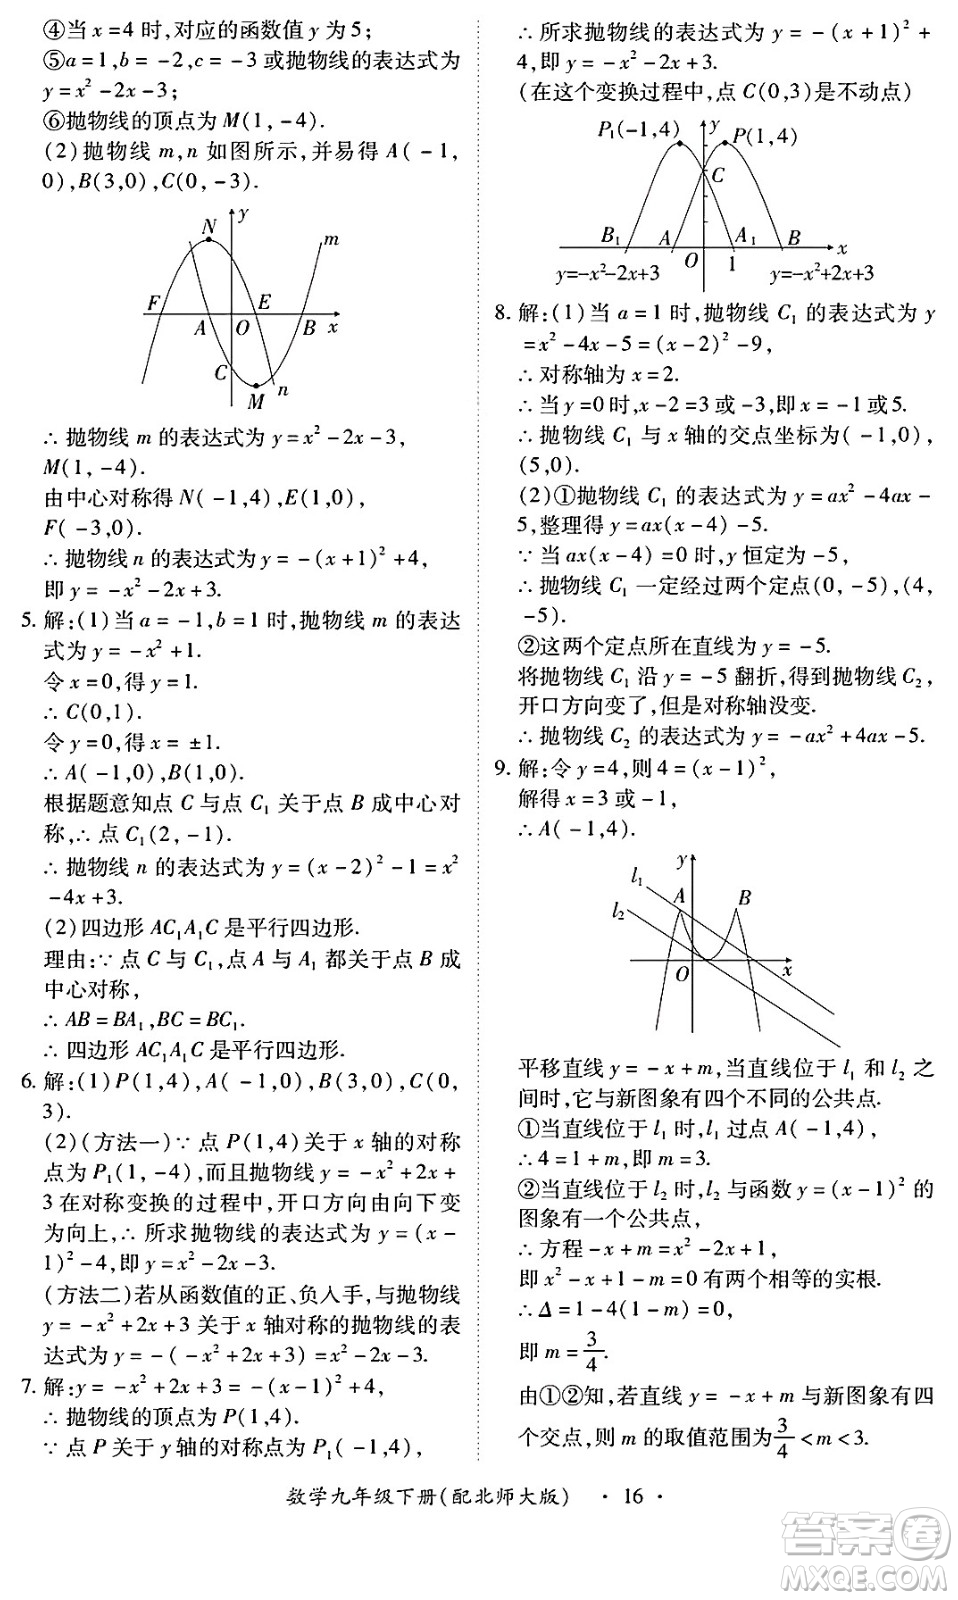 ④当 x = 4 时,对应的函数值 y 为 5;
⑤a = 1, b = -2, c = -3 或抛物线的表达式为
y = x² - 2x - 3;
⑥抛物线的顶点为 M(1, -4).
(2)抛物线 m, n 如图所示,并易得 A( -1,
0), B(3,0), C(0, -3).
y
N
m
F
E
A
O
B
x
C
M
n
∴ 抛物线 m 的表达式为 y = x² - 2x - 3,
M(1, -4).
由中心对称得 N( -1,4), E(1,0),
F( -3,0).
∴ 抛物线 n 的表达式为 y = -(x + 1)² + 4,
即 y = -x² - 2x + 3.
5. 解:(1)当 a = -1, b = 1 时,抛物线 m 的表达
式为 y = -x² + 1.
令 x = 0,得 y = 1.
∴ C(0,1).
令 y = 0,得 x = ±1.
∴ A( -1,0), B(1,0).
根据题意知点 C 与点 C₁ 关于点 B 成中心对
称,∴ 点 C₁(2, -1).
∴ 抛物线 n 的表达式为 y = (x - 2)² - 1 = x²
-4x + 3.
(2)四边形 AC₁A₁C 是平行四边形.
理由:∵ 点 C 与 C₁,点 A 与 A₁ 都关于点 B 成
中心对称,
∴ AB = BA₁, BC = BC₁.
∴ 四边形 AC₁A₁C 是平行四边形.
6. 解:(1)P(1,4), A( -1,0), B(3,0), C(0,
3).
(2)(方法一)∵ 点 P(1,4)关于 x 轴的对称
点为 P₁(1, -4),而且抛物线 y = -x² + 2x +
3 在对称变换的过程中,开口方向由向下变
为向上,∴ 所求抛物线的表达式为 y = (x -
1)² - 4,即 y = x² - 2x - 3.
(方法二)若从函数值的正、负入手,与抛物线
y = -x² + 2x + 3 关于 x 轴对称的抛物线的表
达式为 y = -( -x² + 2x + 3) = x² - 2x - 3.
7. 解:y = -x² + 2x + 3 = -(x - 1)² + 4,
∴ 抛物线的顶点为 P(1,4).
∵ 点 P 关于 y 轴的对称点为 P₁( -1,4),
∴ 所求抛物线的表达式为 y = -(x + 1)² +
4,即 y = -x² - 2x + 3.
(在这个变换过程中,点 C(0,3)是不动点)
P₁(-1,4)
y
P(1,4)
C
B₁
A
A₁
B
O
1
x
y=-x²-2x+3
y=-x²+2x+3
8. 解:(1)当 a = 1 时,抛物线 C₁ 的表达式为 y
= x² - 4x - 5 = (x - 2)² - 9,
∴ 对称轴为 x = 2.
∴ 当 y = 0 时, x - 2 = 3 或 -3,即 x = -1 或 5.
∴ 抛物线 C₁ 与 x 轴的交点坐标为( -1,0),
(5,0).
(2)①抛物线 C₁ 的表达式为 y = ax² - 4ax -
5,整理得 y = ax(x - 4) - 5.
∵ 当 ax(x - 4) = 0 时, y 恒定为 -5,
∴ 抛物线 C₁ 一定经过两个定点(0, -5),(4,
-5).
②这两个定点所在直线为 y = -5.
将抛物线 C₁ 沿 y = -5 翻折,得到抛物线 C₂,
开口方向变了,但是对称轴没变.
∴ 抛物线 C₂ 的表达式为 y = -ax² + 4ax - 5.
9. 解:令 y = 4,则 4 = (x - 1)²,
解得 x = 3 或 -1,
∴ A( -1,4).
y
l₁
A
B
l₂
O
x
平移直线 y = -x + m,当直线位于 l₁ 和 l₂ 之
间时,它与新图象有四个不同的公共点.
①当直线位于 l₁ 时, l₁ 过点 A( -1,4),
∴ 4 = 1 + m,即 m = 3.
②当直线位于 l₂ 时, l₂ 与函数 y = (x - 1)² 的
图象有一个公共点,
∴ 方程 -x + m = x² - 2x + 1,
即 x² - x + 1 - m = 0 有两个相等的实根.
∴ Δ = 1 - 4(1 - m) = 0,
即 m = 3/4.
由①②知,若直线 y = -x + m 与新图象有四
个交点,则 m 的取值范围为 3/4 < m < 3.
数学九年级下册(配北师大版) · 16 ·
答案圈
MXQE.COM